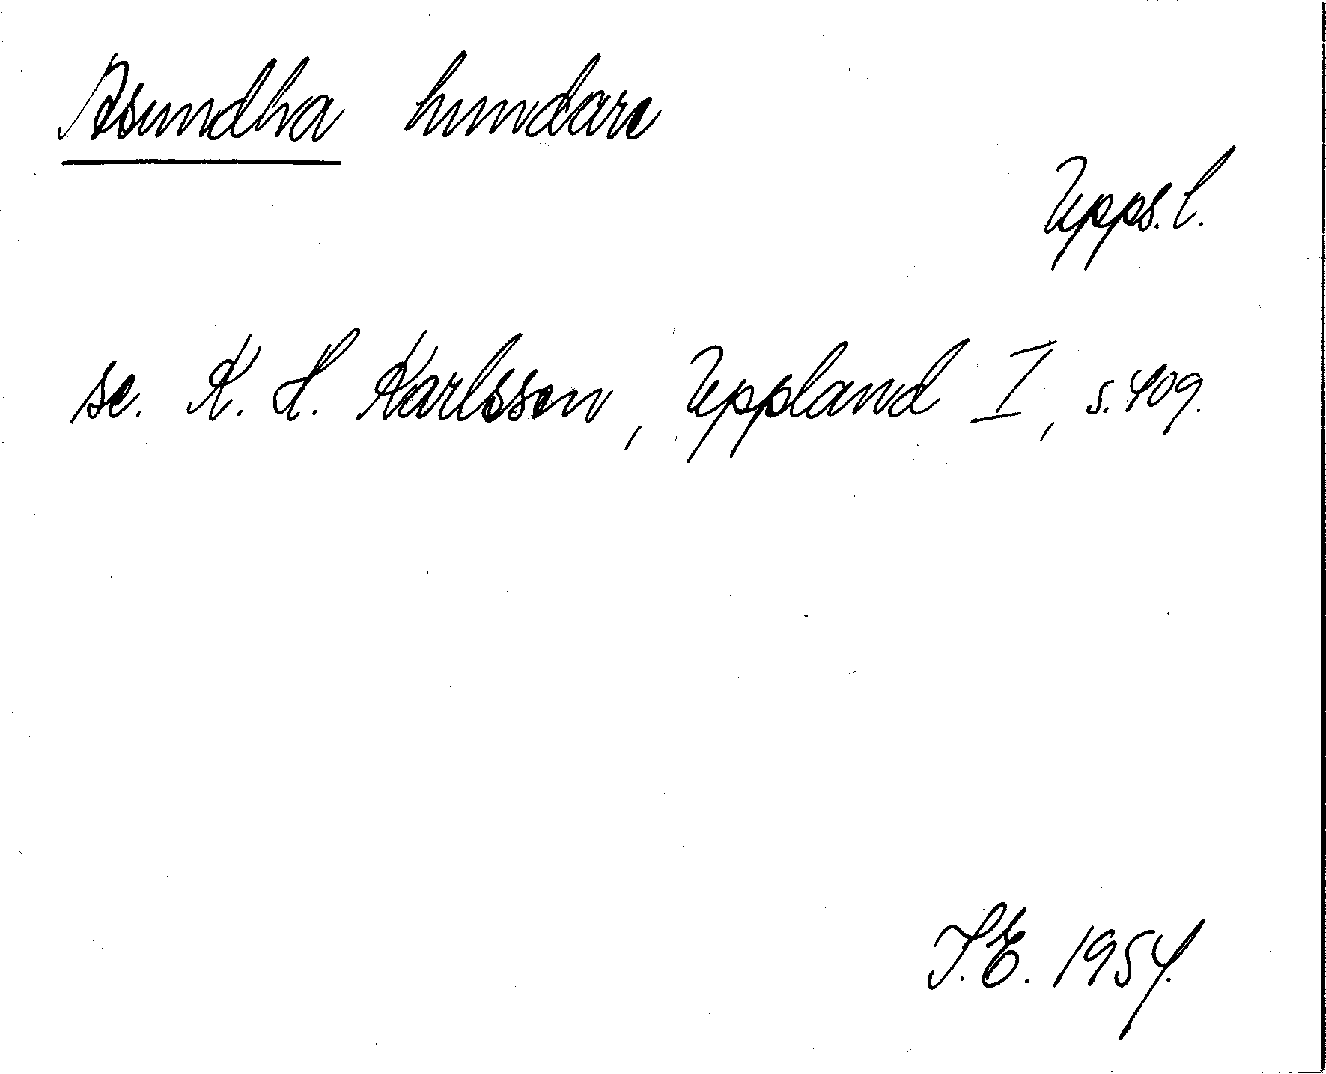 Asundha hundare
Upps. l.
se. K. H. Karlsson, Uppland I, s. 409.
I.E. 1954.